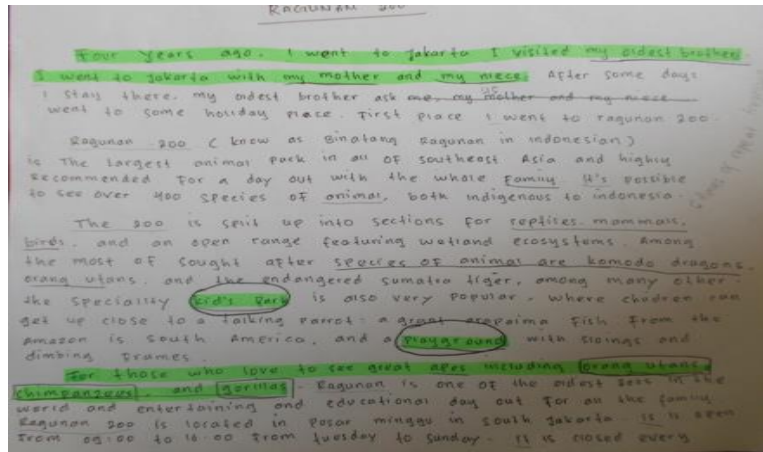 RAGUNAN 200
Four years ago. I went to Jakarta I visited my oldest brother.
I went to Jakarta with my mother and my niece. After some days
I stay there. my oldest brother ask me, my mother and my niece us
went to some holiday place. First place I went to ragunan 200.
Ragunan 200 ( know as Binatang Ragunan in indonesian )
is The largest animal park in all of southeast Asia and highly
Recommended for a day out with the whole family. It's possible
to see over 400 species of animal, both indigenous to indonesia.
The 200 is split up into sections for reptiles. mammals.
birds. and an open range featuring wetland ecosystems. Among
the most of sought after species of animal are komodo dragons.
orang utans, and the endangered sumatra tiger, among many other
the speciality kid's Park is also very popular. where children can
get up close to a talking parrot. a giant arapaima fish from the
Amazon is south America, and a playground with slongs and
climbing frames.
For those who love to see great apes including orang utans,
chimpanzees, and gorillas. Ragunan is one of the oldest zoos in the
world and entertaining and educational day out for all the family.
Ragunan 200 is located in Pasar minggu in south Jakarta. is is open
from 09:00 to 16.00 from tuesday to sunday. is is closed every